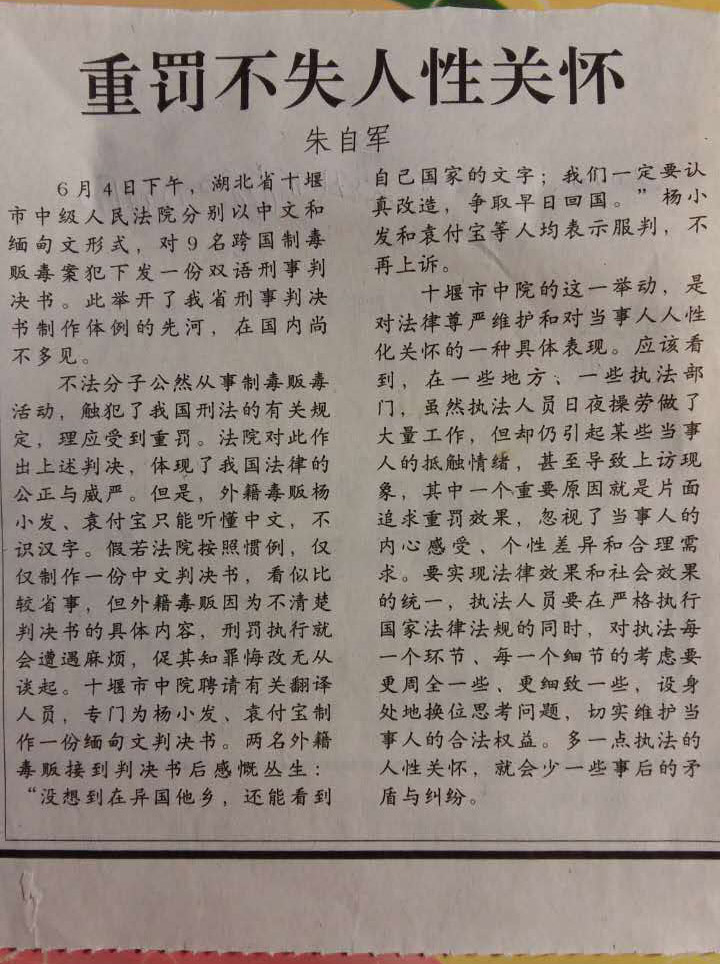 重罚不失人性关怀
朱自军
6月4日下午，湖北省十堰
市中级人民法院分别以中文和
缅甸文形式，对9名跨国制毒
贩毒案犯下发一份双语刑事判
决书。此举开了我省刑事判决
书制作体例的先河，在国内尚
不多见。
不法分子公然从事制毒贩毒
活动，触犯了我国刑法的有关规
定，理应受到重罚。法院对此作
出上述判决，体现了我国法律的
公正与威严。但是，外籍毒贩杨
小发、袁付宝只能听懂中文，不
识汉字。假若法院按照惯例，仅
仅制作一份中文判决书，看似比
较省事，但外籍毒贩因为不清楚
判决书的具体内容，刑罚执行就
会遭遇麻烦，促其知罪悔改无从
谈起。十堰市中院聘请有关翻译
人员，专门为杨小发、袁付宝制
作一份缅甸文判决书。两名外籍
毒贩接到判决书后感慨丛生：
“没想到在异国他乡，还能看到
自己国家的文字；我们一定要认
真改造，争取早日回国。”杨小
发和袁付宝等人均表示服判，不
再上诉。
十堰市中院的这一举动，是
对法律尊严维护和对当事人人性
化关怀的一种具体表现。应该看
到，在一些地方、一些执法部
门，虽然执法人员日夜操劳做了
大量工作，但却仍引起某些当事
人的抵触情绪，甚至导致上访现
象，其中一个重要原因就是片面
追求重罚效果，忽视了当事人的
内心感受、个性差异和合理需
求。要实现法律效果和社会效果
的统一，执法人员要在严格执行
国家法律法规的同时，对执法每
一个环节、每一个细节的考虑要
更周全一些、更细致一些，设身
处地换位思考问题，切实维护当
事人的合法权益。多一点执法的
人性关怀，就会少一些事后的矛
盾与纠纷。